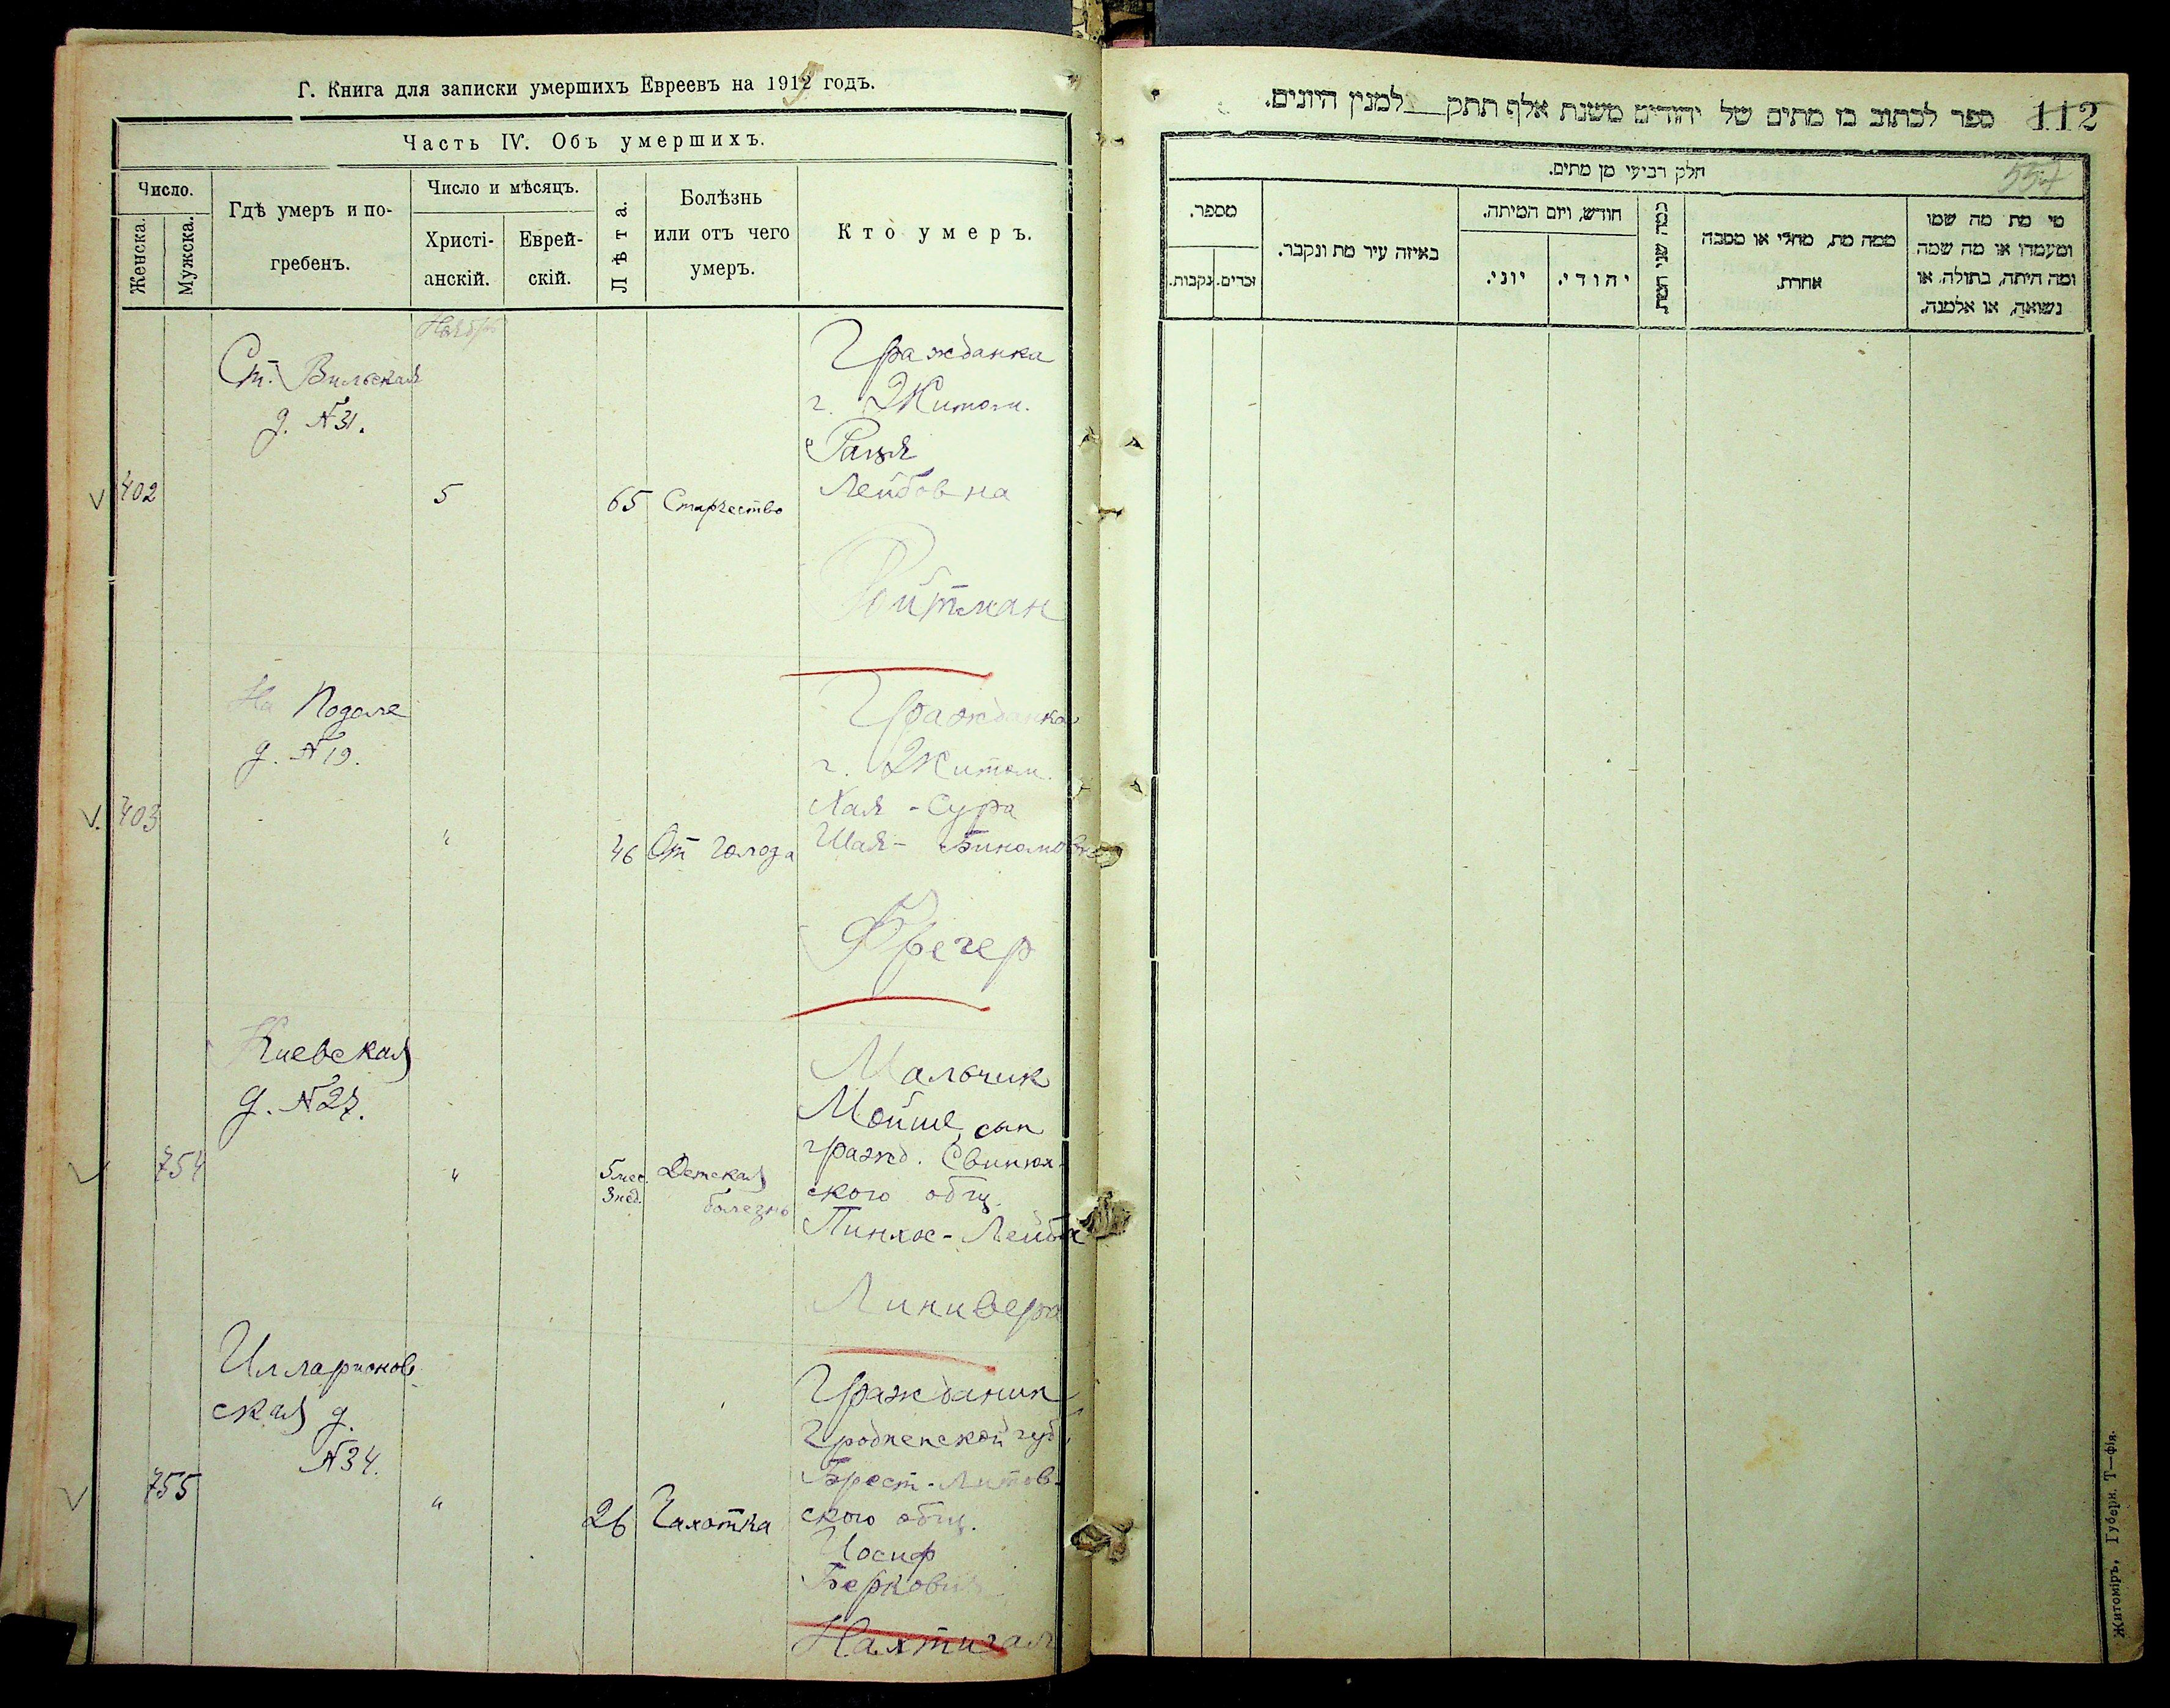 Г. Книга для записки умершихъ Евреевъ на 1912 годъ.
Часть IV. Объ умершихъ.
Число.
Женска.
Мужска.
Гдѣ умеръ и по-
гребенъ.
Число и мѣсяцъ.
Христі-
анскій.
Еврей-
скій.
Лѣта.
Болѣзнь
или отъ чего
умеръ.
Кто умеръ.
Ноябрь
Ст. Вильская
д. №31.
402
5
65
Старчество
Гражданка
г. Житом.
Лейбовна
Ройтман
На Подоле
д. №19.
403
"
46
От голода
Гражданка
г. Житом.
Хая-Сура
Шая-
Фрегер
Киевская
д. №27.
754
"
5 мес.
3 нед.
Детская
болезнь
Мальчик
Мойше, сын
гражд. Свинюх-
ского общ.
Пинхос-Лейба
Линивера
Илларионов
ская д.
№34.
755
"
26
Чахотка
Гражданин
Гродненской губ.
Брест-Литов-
ского общ.
Иосиф
Беркович
Нахтигал
112
ספר לכתוב בו מתים של יהודים משנת אלף תתק__ למנין היונים.
557
חלק רביעי מן מתים.
מי מת מה שמו
ומעמדו או מה שמה
ומה היתה, בתולה, או
נשואה, או אלמנה.
ממה מת, מחלי או מסבה
אחרת.
כמה שני המת
חודש, ויום המיתה.
יהודי.
יוני.
באיזה עיר מת ונקבר.
מספר.
זכרים.
נקבות.
Житоміръ, Губерн. Т—фія.